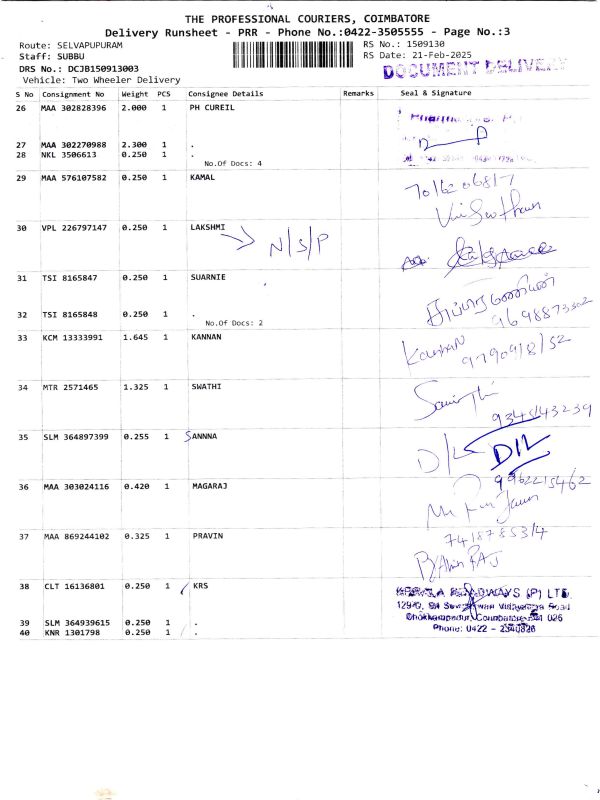 THE PROFESSIONAL COURIERS, COIMBATORE
Delivery Runsheet - PRR - Phone No.:0422-3505555 - Page No.:3
Route: SELVAPUPURAM
RS No.: 1509130
Staff: SUBBU
RS Date: 21-Feb-2025
DRS No.: DCJB150913003
DOCUMENT DELIVERY
Vehicle: Two Wheeler Delivery
S No Consignment No Weight PCS Consignee Details Remarks Seal & Signature
26 MAA 302828396 2.000 1 PH CUREIL
27 MAA 302270988 2.300 1 .
28 NKL 3506613 0.250 1 .
No.Of Docs: 4
29 MAA 576107582 0.250 1 KAMAL
30 VPL 226797147 0.250 1 LAKSHMI
N/S/P
31 TSI 8165847 0.250 1 SUARNIE
32 TSI 8165848 0.250 1 .
No.Of Docs: 2
9698873502
33 KCM 13333991 1.645 1 KANNAN
Kannan
34 MTR 2571465 1.325 1 SWATHI
35 SLM 364897399 0.255 1 SANNNA
D/L D/L
36 MAA 303024116 0.420 1 MAGARAJ
9962215462
37 MAA 869244102 0.325 1 PRAVIN
7418785314
38 CLT 16136801 0.250 1 KRS
ROADWAYS (P) LTD.
39 SLM 364939615 0.250 1 .
40 KNR 1301798 0.250 1 .
Phone: 0422 - 2340826